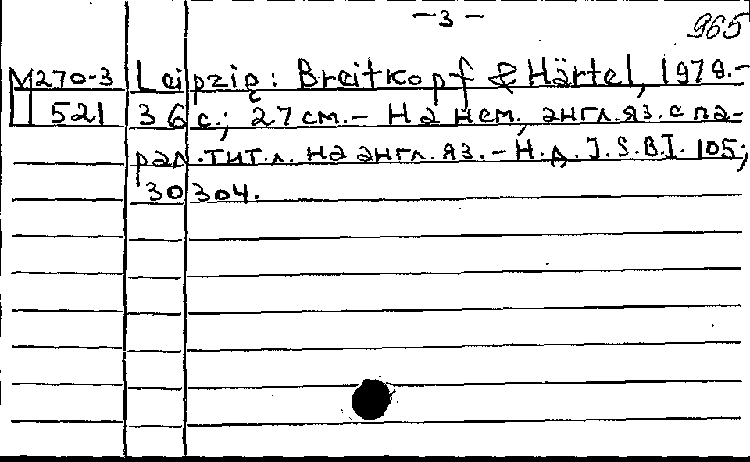 - 3 -
965
M270-3 Leipzig: Breitkopf & Härtel, 1979.-
521 36 с.; 27 см.- На нем., англ. яз. с па-
рал. тит. л. на англ. яз. - Н. д. J. S. B. I. 105;
30304.